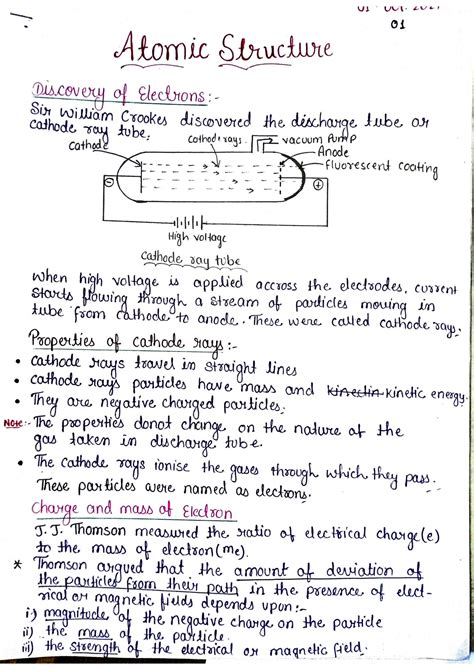 01
Atomic Structure
Discovery of Electrons:-
Sir William Crookes discovered the discharge tube or
cathode ray tube.
cathode
cathode rays
vacuum pump
Anode
Fluorescent coating
High voltage
cathode ray tube
When high voltage is applied accross the electrodes, current
starts flowing through a stream of particles moving in
tube from cathode to anode. These were called cathode rays.
Properties of cathode rays:-
• cathode rays travel in straight lines
• cathode rays particles have mass and kinectin kinetic energy.
• They are negative charged particles.
Note:- The properties donot change on the nature of the
gas taken in discharge tube.
• The cathode rays ionise the gases through which they pass.
These particles were named as electrons.
Charge and mass of Electron
J.J. Thomson measured the ratio of electrical charge(e)
to the mass of electron(me).
* Thomson argued that the amount of deviation of
the particles from their path in the presence of elect-
rical or magnetic fields depends upon:-
i) magnitude of the negative charge on the particle
ii) the mass of the particle.
iii) the strength of the electrical or magnetic field.